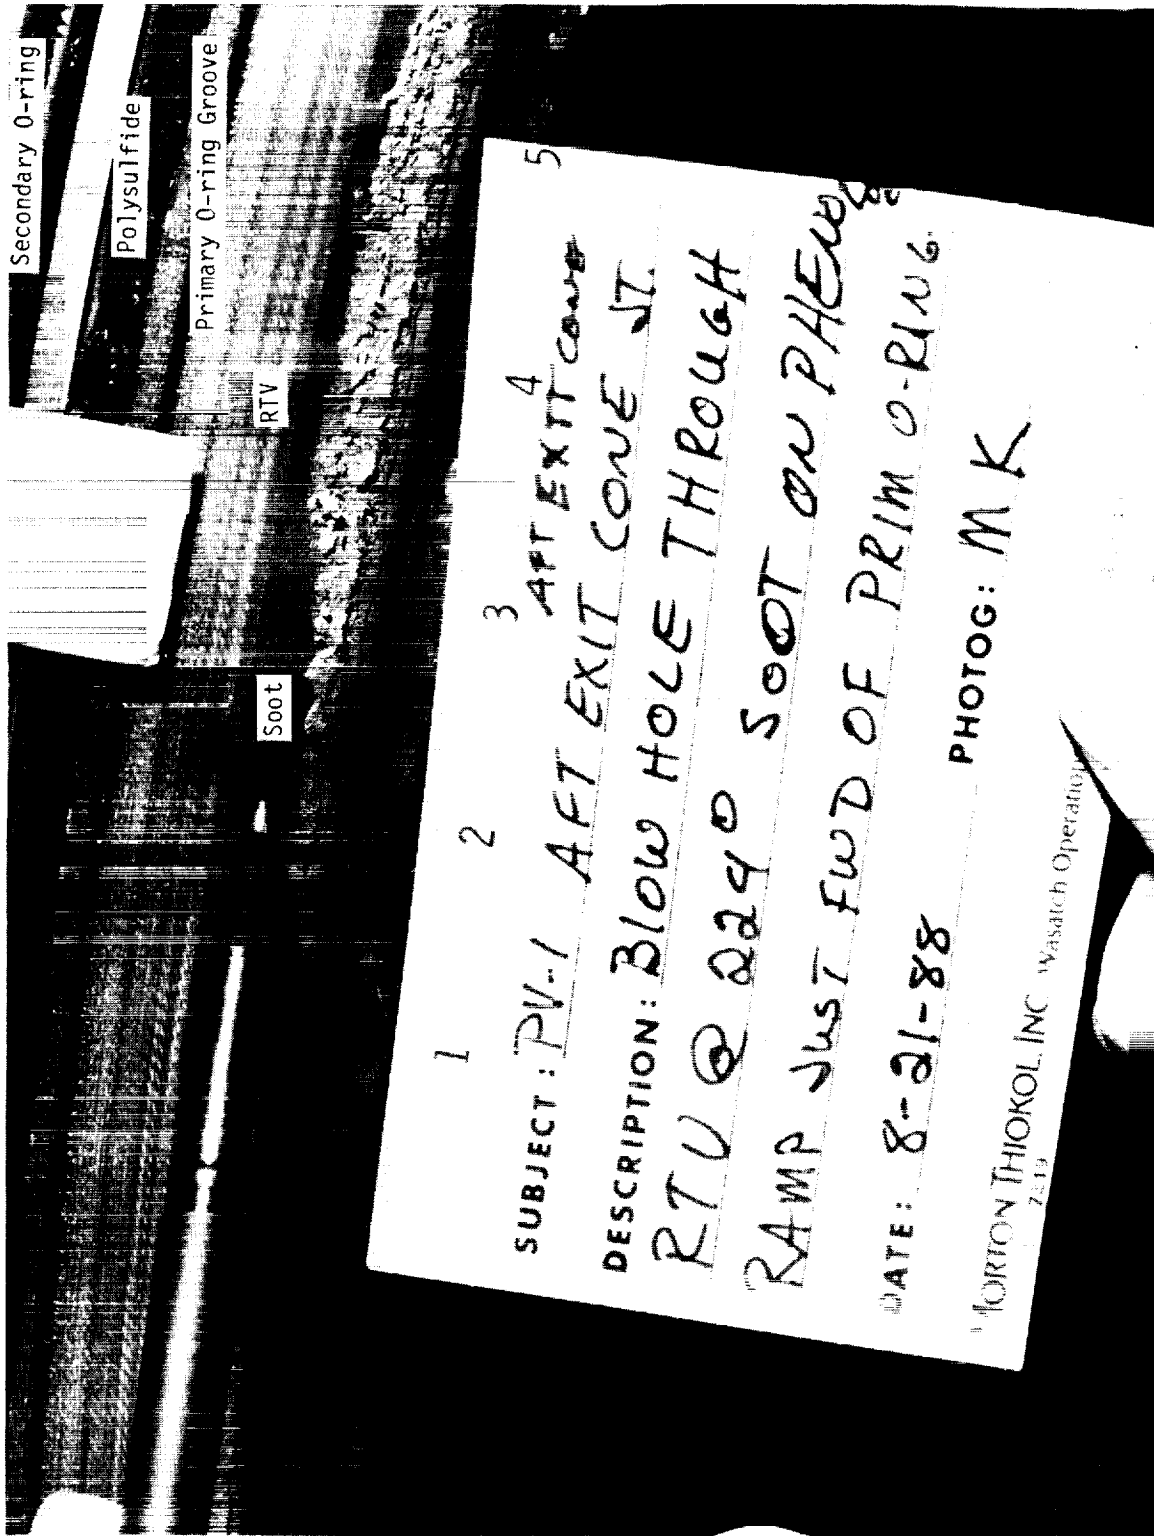 Secondary O-ring
Polysulfide
Primary O-ring Groove
RTV
Soot
1 2 3 4 5
AFT EXIT CONE
SUBJECT: PV-1 AFT EXIT CONE JT.
DESCRIPTION: BLOW HOLE THROUGH
RTV @ 224° SOOT ON PHENO
RAMP JUST FWD OF PRIM O-RING.
DATE: 8-21-88 PHOTOG: MK
MORTON THIOKOL, INC Wasatch Operation